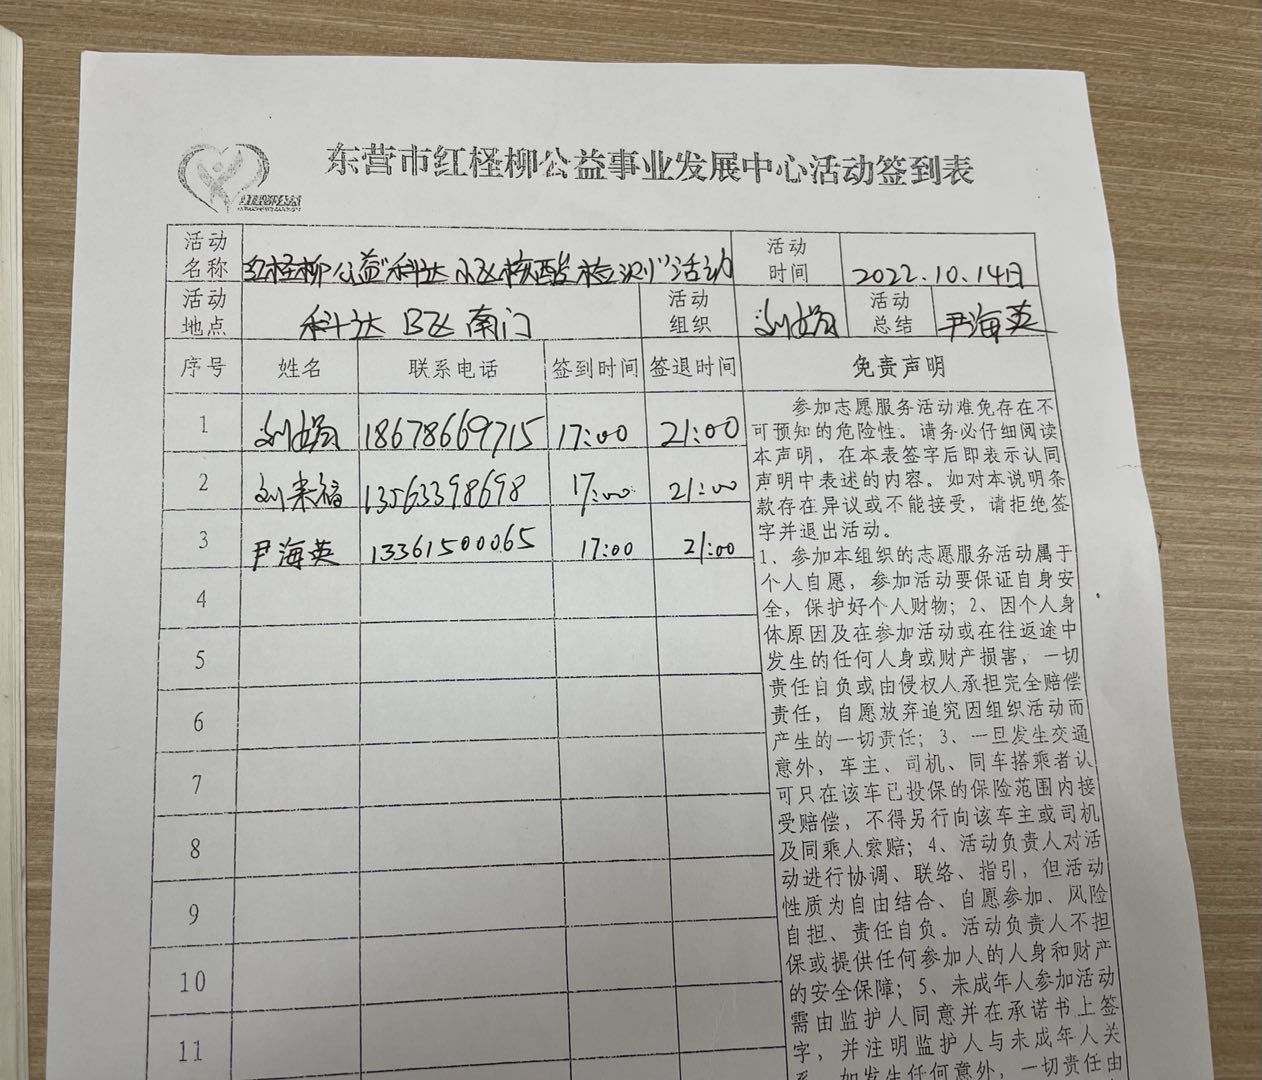 东营市红柽柳公益事业发展中心活动签到表
活动名称 红柽柳公益"科达小区核酸检测"活动 活动时间 2022.10.14日
活动地点 科达B区南门 活动组织 活动总结 尹海英
序号 姓名 联系电话 签到时间 签退时间 免责声明
1 18678669715 17:00 21:00
2 刘来福 13563398698 17:00 21:00
3 尹海英 13361500065 17:00 21:00
4
5
6
7
8
9
10
11
参加志愿服务活动难免存在不
可预知的危险性。请务必仔细阅读
本声明，在本表签字后即表示认同
声明中表述的内容。如对本说明条
款存在异议或不能接受，请拒绝签
字并退出活动。
1、参加本组织的志愿服务活动属于
个人自愿，参加活动要保证自身安
全，保护好个人财物；2、因个人身
体原因及在参加活动或在往返途中
发生的任何人身或财产损害，一切
责任自负或由侵权人承担完全赔偿
责任，自愿放弃追究因组织活动而
产生的一切责任；3、一旦发生交通
意外，车主、司机、同车搭乘者认
可只在该车已投保的保险范围内接
受赔偿，不得另行向该车主或司机
及同乘人索赔；4、活动负责人对活
动进行协调、联络、指引，但活动
性质为自由结合、自愿参加、风险
自担、责任自负。活动负责人不担
保或提供任何参加人的人身和财产
的安全保障；5、未成年人参加活动
需由监护人同意并在承诺书上签
字，并注明监护人与未成年人关
系，如发生任何意外，一切责任由